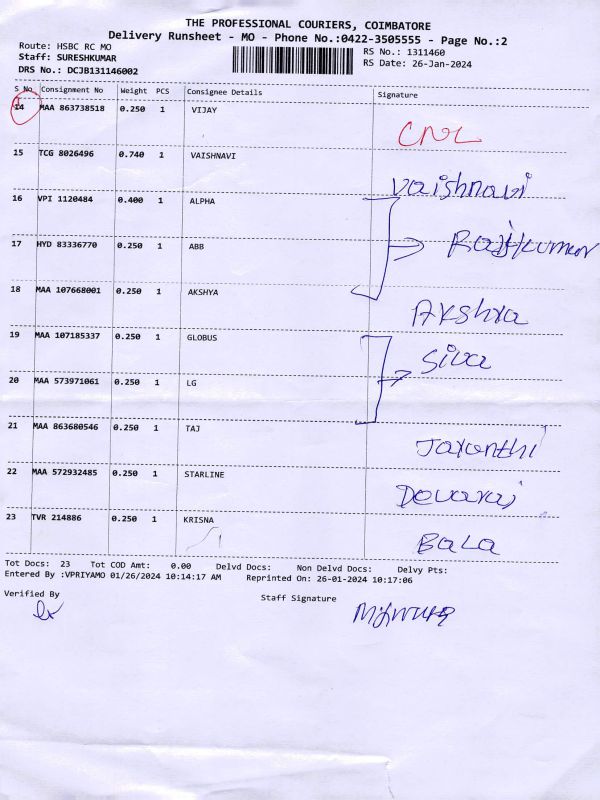 THE PROFESSIONAL COURIERS, COIMBATORE
Delivery Runsheet - MO - Phone No.:0422-3505555 - Page No.:2
Route: HSBC RC MO
Staff: SURESHKUMAR
DRS No.: DCJB131146002
RS No.: 1311460
RS Date: 26-Jan-2024
S No Consignment No Weight PCS Consignee Details Signature
14 MAA 863738518 0.250 1 VIJAY
15 TCG 8026496 0.740 1 VAISHNAVI Vaishnavi
16 VPI 1120484 0.400 1 ALPHA
17 HYD 83336770 0.250 1 ABB Rajkumar
18 MAA 107668001 0.250 1 AKSHYA Akshya
19 MAA 107185337 0.250 1 GLOBUS Siva
20 MAA 573971061 0.250 1 LG
21 MAA 863680546 0.250 1 TAJ Jayanthi
22 MAA 572932485 0.250 1 STARLINE Devaraj
23 TVR 214886 0.250 1 KRISNA Bala
Tot Docs: 23 Tot COD Amt: 0.00 Delvd Docs: Non Delvd Docs: Delvy Pts:
Entered By :VPRIYAMO 01/26/2024 10:14:17 AM Reprinted On: 26-01-2024 10:17:06
Verified By Staff Signature